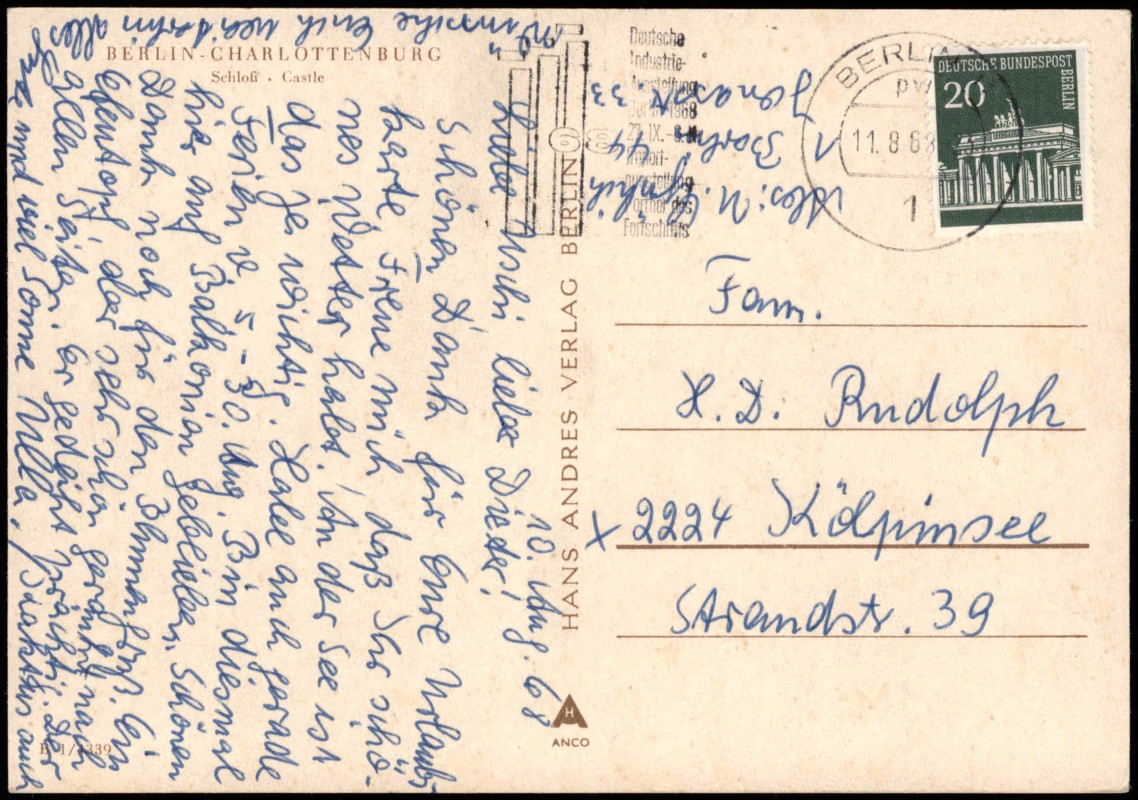 BERLIN-CHARLOTTENBURG
Schloß · Castle
10. Aug. 68
Liebe Uschi lieber Dieter!
Schönen Dank für Eure Urlaubs-
karte. Freue mich daß Ihr schö-
nes Wetter habt. An der See ist
das ja wichtig. Habe auch gerade
Ferien v 5 - 30. Aug. Bin diesmal
hier auf Balkonien geblieben. Schönen
Dank noch für den Blumengruß. Ein
Efeutopf der sehr schön gerankt nach
allen Seiten. Er gedeiht prächtig. Der
Kaktus auch
Gute und viel Sonne Ulla.
Wünsche Euch weiterhin alles
B 1/4339
HANS ANDRES VERLAG BERLIN
ANCO
Deutsche
Industrie-
Ausstellung
Berlin 1968
27. IX. -
Import-
ausstellung
Partner des
Fortschritts
Abs: U.
1 Berlin 44
33
BERLIN
11.8.68
1
DEUTSCHE BUNDESPOST
BERLIN
20
Fam.
H. D. Rudolph
X 2224 Kölpinsee
Strandstr. 39